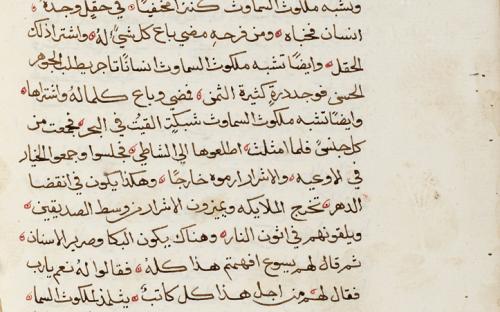 وتشبه ملكوت السماوت كنزًا مخفيًا في حقل وجده
انسان فخباه ومن فرحه مضي باع كل شي له واشترا ذلك
الحقل وايضًا تشبه ملكوت السماوت انسانًا تاجر يطلب الجوهر
الحسن فوجد درة كثيرة الثمن فمضي وباع كلما له واشتراها
وايضًا تشبه ملكوت السماوت شبكة القيت في البحر فجمعت من
كل جنس فلما امتلت اطلعوها الي الشاطي فجلسوا وجمعوا الخيار
في الاوعيه والاشرار ارموه خارجًا وهكذا يكون في انقضا
الدهر تخرج الملايكه ويميزون الاشرار من وسط الصديقين
ويلقونهم في اتون النار وهناك يكون البكا وصرير الاسنان
ثم قال لهم يسوع افهمتم هذا كله فقالوا له نعم يارب
فقال لهم من اجل هذا كل كاتب يتلمذ لملكوت السما